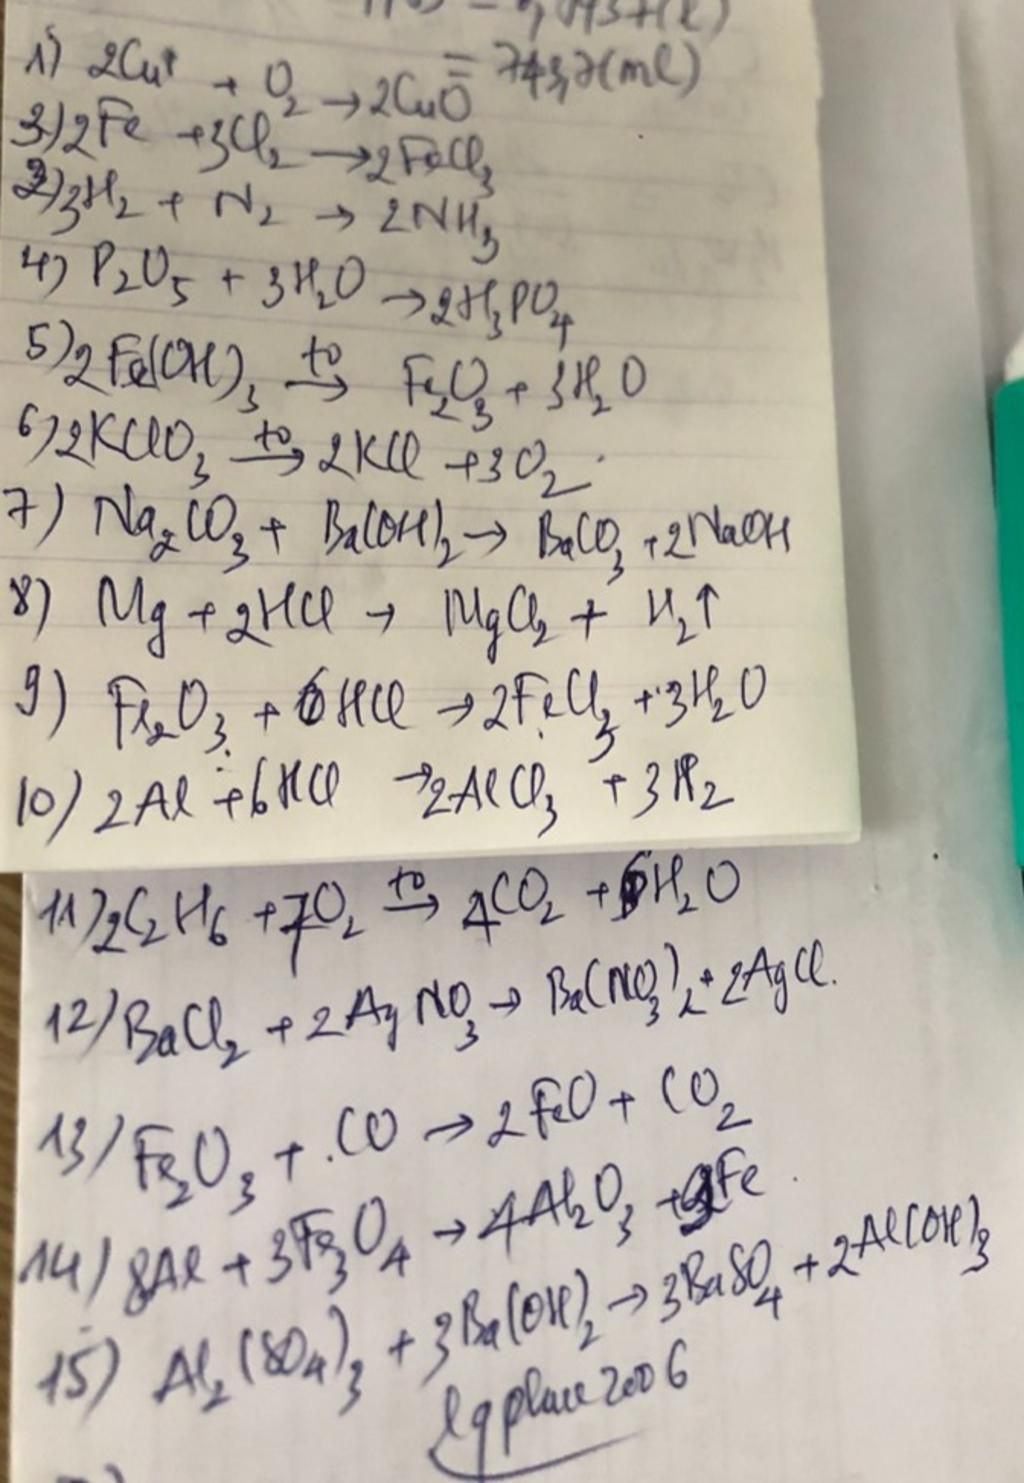 = 743,7(ml)
1) 2Cu + O₂ → 2CuO
3) 2Fe + 3Cl₂ → 2FeCl₃
2) 3H₂ + N₂ → 2NH₃
4) P₂O₅ + 3H₂O → 2H₃PO₄
5) 2Fe(OH)₃ t° → Fe₂O₃ + 3H₂O
6) 2KClO₃ t° → 2KCl + 3O₂
7) Na₂CO₃ + Ba(OH)₂ → BaCO₃ + 2NaOH
8) Mg + 2HCl → MgCl₂ + H₂↑
9) Fe₂O₃ + 6HCl → 2FeCl₃ + 3H₂O
10) 2Al + 6HCl → 2AlCl₃ + 3H₂
11) 2C₂H₆ + 7O₂ t° → 4CO₂ + 6H₂O
12) BaCl₂ + 2AgNO₃ → Ba(NO₃)₂ + 2AgCl.
13) Fe₂O₃ + CO → 2FeO + CO₂
14) 8Al + 3Fe₃O₄ → 4Al₂O₃ + 9Fe
15) Al₂(SO₄)₃ + 3Ba(OH)₂ → 3BaSO₄ + 2Al(OH)₃